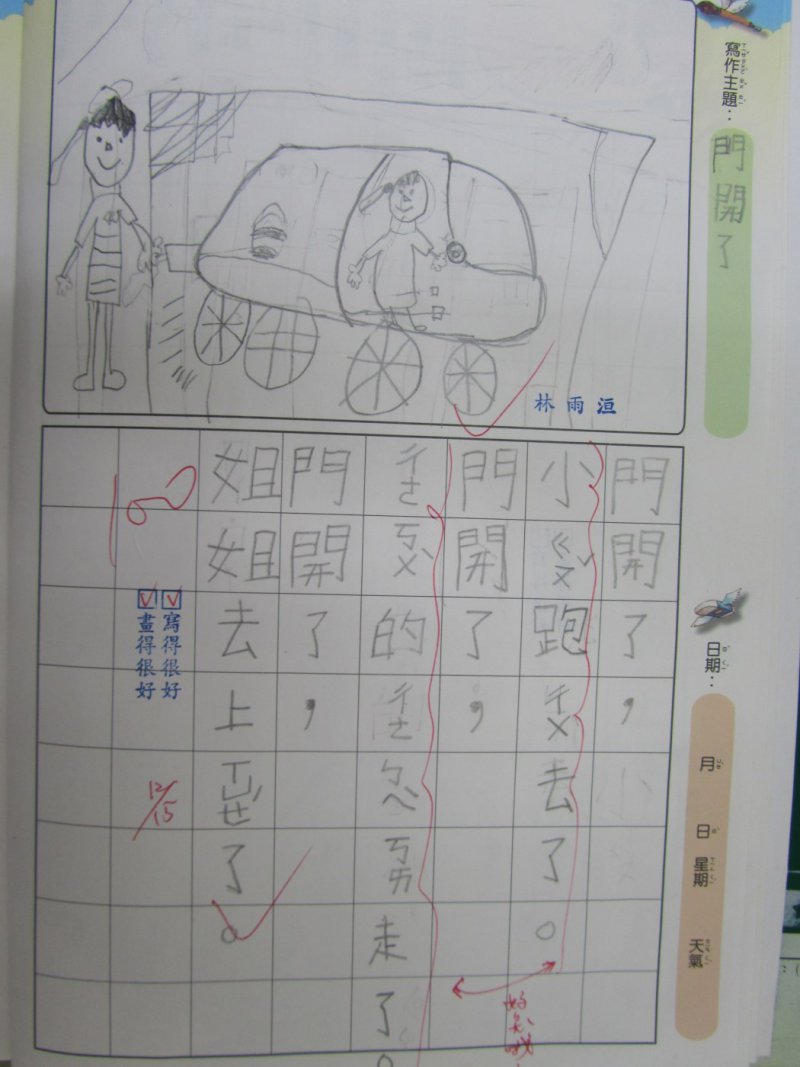 寫作主題：
門開了
日期：
月
日
星期
天氣
林雨洹
門開了，
小ㄍㄡˇ跑ㄔㄨ去了。
門開了，
ㄔㄜㄎㄨ的ㄔㄜㄅㄟㄎㄞ走了。
門開了，
姐姐去上ㄒㄩㄝˊ了。
100
寫得很好
畫得很好
12/15